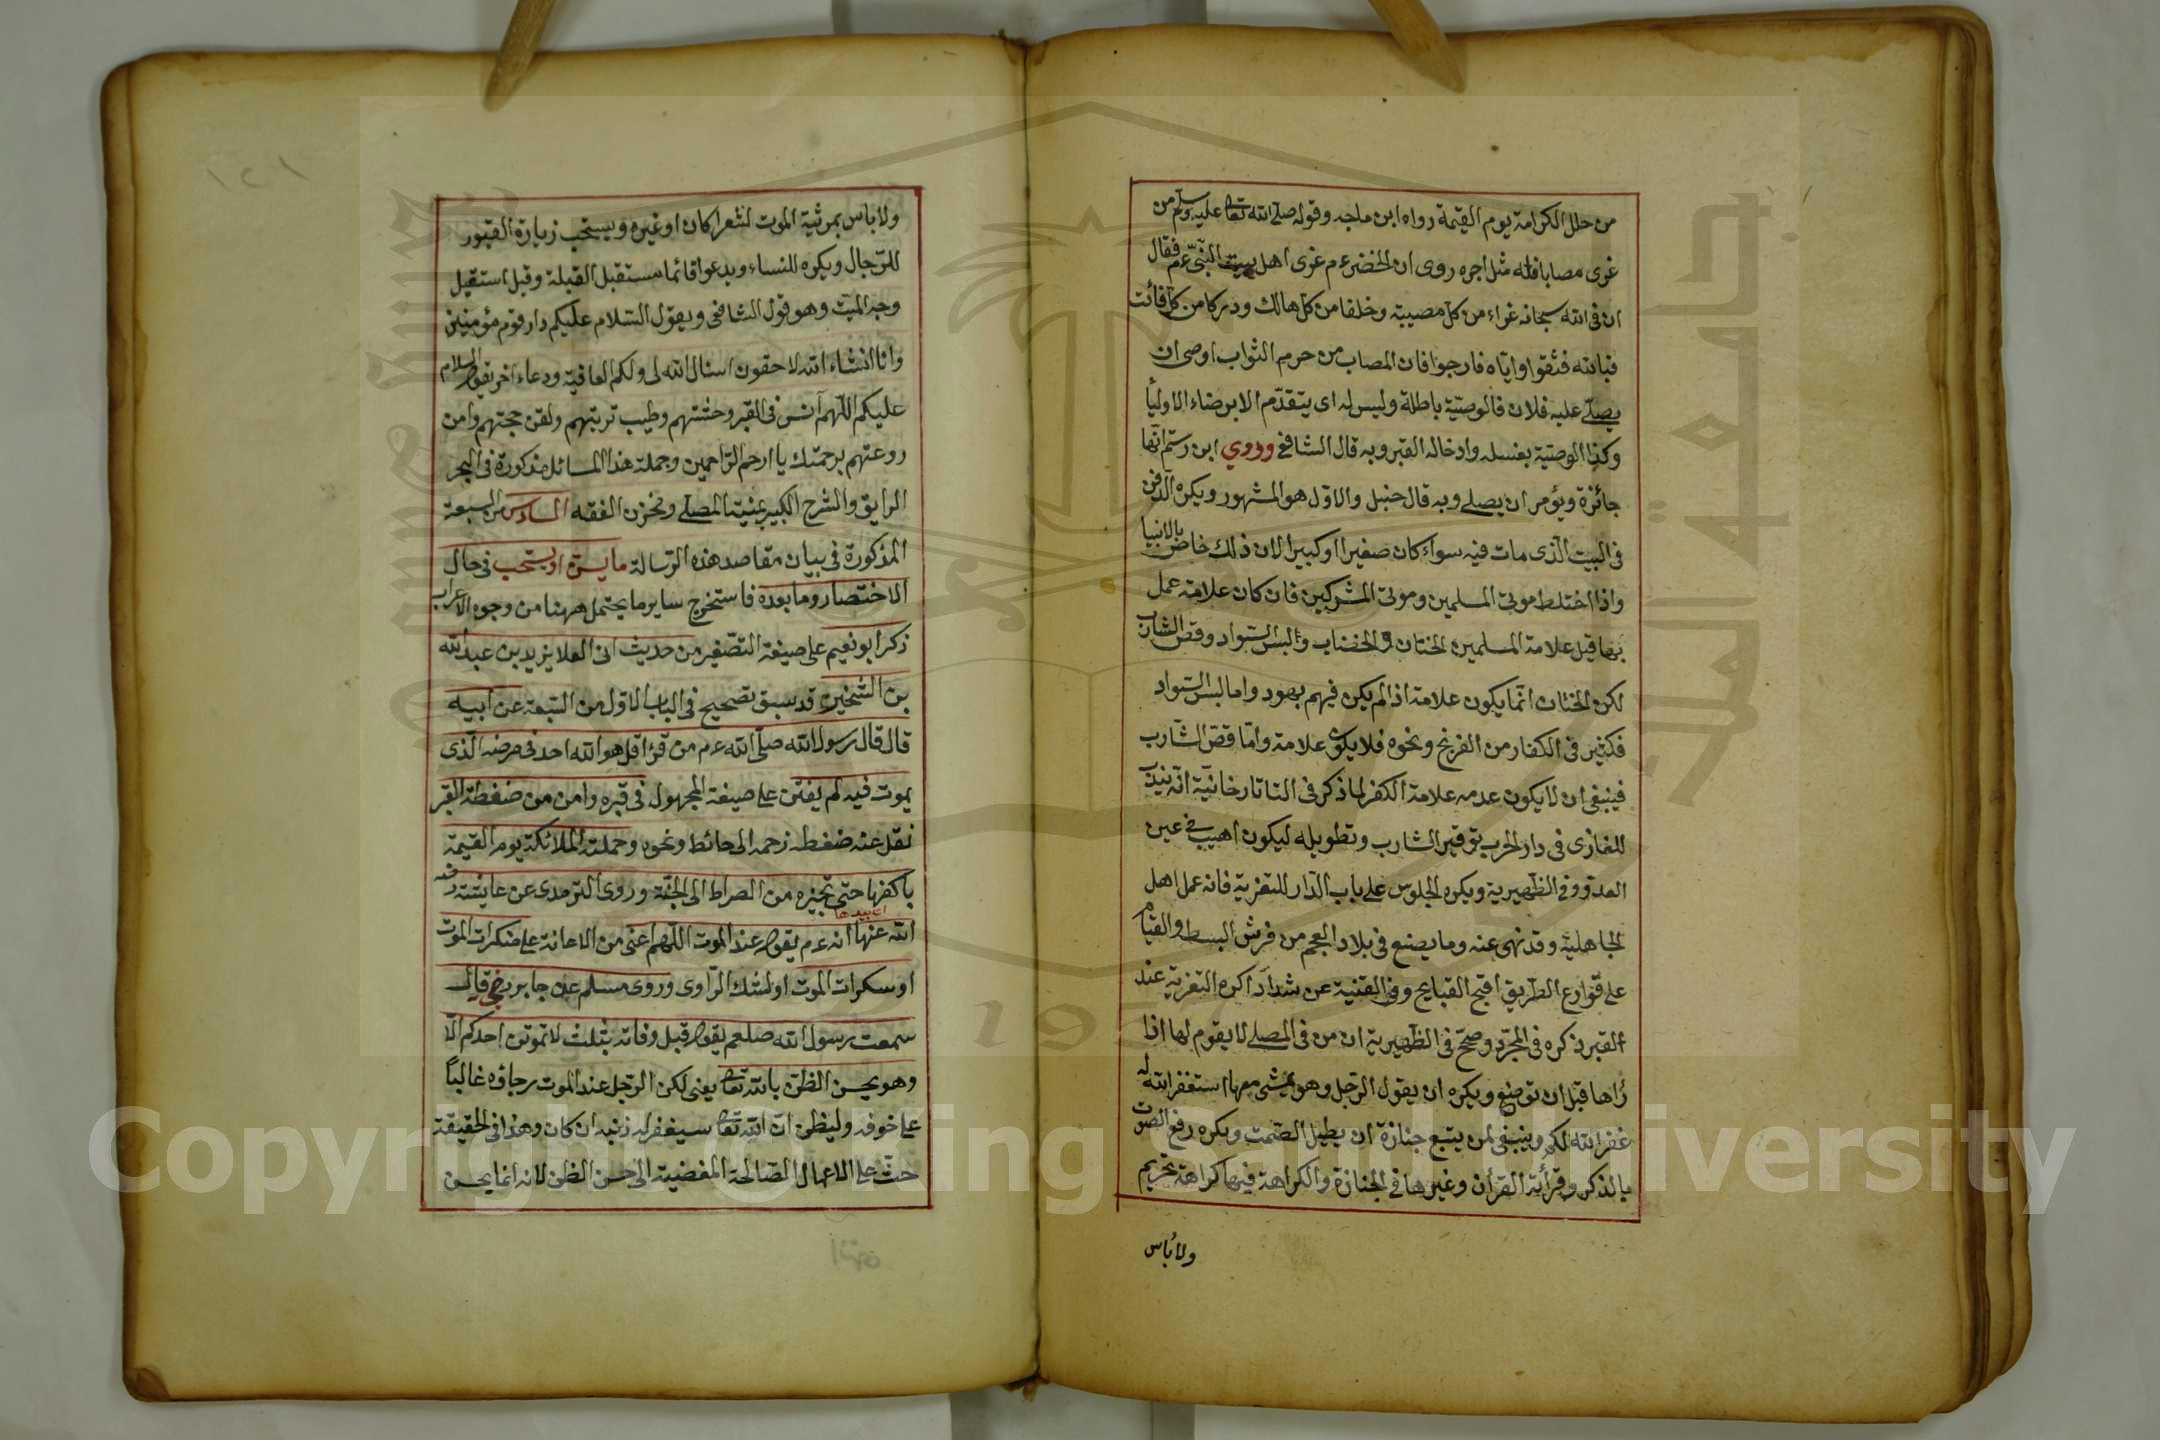 من حلل الكرامة يوم القيمة رواه ابن ماجه وقوله صلى الله تعالى عليه وسلم من
غرى مصابا فله مثل اجره روى ان الخضر ءم غرى اهل بيت النبي ءم فقال
ان فى الله سبحانه غراء من كل مصيبة وخلفا من كل هالك ودركا من كل فائت
فبالله فثقوا واياه فارجوا فان المصاب من حرم الثواب اوصى ان
يصلى عليه فلان فالوصية باطلة وليس له اى يتقدم الا برضاء الاوليأ
وكذا الوصية بغسله وادخاله القبر وبه قال الشافعى وروي ابن رستم انها
جائزة ويؤمر ان يصلى وبه قال حنبل والاول هو المشهور ويكره الدفن
فى البيت الذى مات فيه سواء كان صغيرا او كبيرا لان ذلك خاص بالانبيا
واذا اختلط موتى المسلمين وموتى المشركين فان كان علامة عمل
بها قيل علامة المسلمين الختان والخضاب والبس السواد وقص الشارب
لكن الختان انما يكون علامة اذا لم يكن فيهم يهود واما لبس السواد
فكثير فى الكفار من الفرنج ونحوه فلا يكون علامة واما قص الشارب
فينبغى ان لا يكون عدمه علامة الكفر لما ذكر فى التاتارخانية انه يندب
للغازى فى دار الحرب توقير الشارب وتطويله ليكون اهيب فى عين
العدو وفى الظهيرية ويكره الجلوس على باب الدار للتعزية فانه عمل اهل
الجاهلية وقد نهى عنه وما يصنع فى بلاد العجم من فرش البسط والقيام
على قوارع الطريق اقبح القبايح وفى القنية عن شداد اكره التعزية عند
القبر ذكره فى المجرد وصح فى الظهيرية ان من فى المصلى لا يقوم لها اذا
رأها قبل ان توضع ويكره ان يقول الرجل وهو يمشى معها استغفر الله له
غفر الله لكم وينبغى لمن يتبع جنازة ان يطيل الصمت ويكره رفع الصوت
بالذكر وقرأة القرأن وغيرها فى الجنازة والكراهة فيها كراهة تحريم
ولا بأس
ولا باس بمرثية الموت لشعرا كان او غيره ويستحب زيارة القبور
للرجال ويكره للنساء ويدعوا قائما مستقبل القبلة وقيل استقيل
وجه الميت وهو قول الشافعى ويقول السلام عليكم دار قوم مؤمنين
وانا انشاء الله لاحقون اسئال الله لى ولكم العافية ودعاء اخر يقول السلام
عليكم اللهم آنس فى القبر وحشتهم وطيب تربتهم ولقن حجتهم وامن
روعتهم برحمتك يا ارحم الراحمين وجملة هذا المسائل مذكورة فى البحر
الرايق والشرح الكبير لمنية المصلى ومخزن الفقه السادس من السبعة
المذكورة فى بيان مقاصد هذه الرسالة ما يسن او يستحب فى حال
الاختصار وما بعده فاستخرج ساير ما يحتمل ههنا من وجوه الاعراب
ذكر ابو نعيم على صيغة التصغير من حديث ابى العلا يزيد بن عبدالله
بن الشخير قد سبق تصحيح فى الباب الاول من السبعة عن ابيه
قال قال رسول الله صلى الله ءم من قرأ قل هو الله احد فى مرضه الذى
يموت فيه لم يفتن على صيغة المجهول فى قبره وامن من ضغطة القبر
نقل عنه ضغطه زحمه الى حائط ونحوه وحملته الملائكة يوم القيمة
باكفها حتى تجيزه من الصراط الى الجنة وروى الترمدى عن عايشة رضى
الله عنها انه ءم يقول عند الموت اللهم اعنى من الاعانة على منكرات الموت
او سكرات الموت او لشك الراوى وروى مسلم عن جابر رضى قال
سمعت رسول الله صلعم يقول قبل وفاته بثلث لا تموتن احدكم الا
وهو يحسن الظن بالله تعالى يعنى لكن الرجل عند الموت رجاؤه غالبأ
على خوفه وليظن ان الله تعالى سيغفر له ذنبه ان كان وهذا فى الحقيقة
حث على الاعمال الصالحة المفضية الى حسن الظن لانه انما يحسن
Copyright © King Saud University